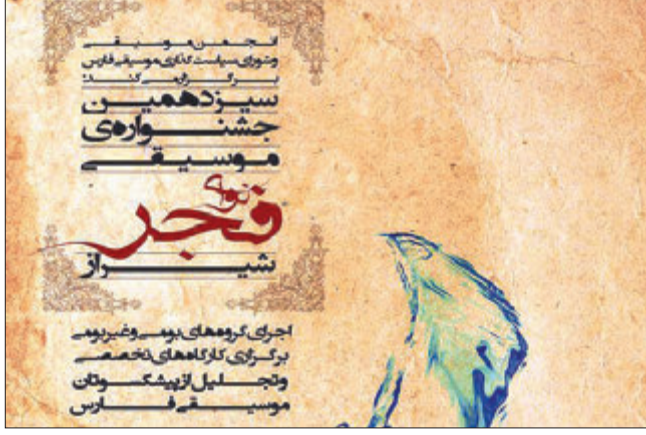 انجمن موسیقی
وشورای سیاست گذاری موسیقی فارس
برگزار می کند:
سیزدهمین
جشنواره‌ی
موسیقی
نوای
فجر
شیراز
اجرای گروه‌های بومی و غیر بومی
برگزاری کارگاه‌های تخصصی
و تجلیل از پیشکسوتان
موسیقی فارس